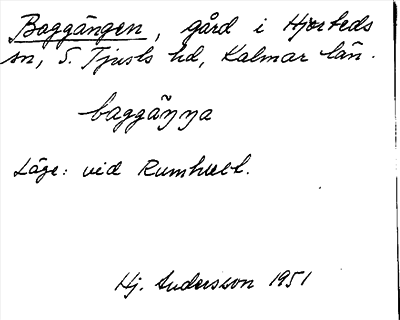 Baggängen, gård i Hjorteds
sn, S. Tjusts hd, Kalmar län.
baggäŋŋa
Läge: vid Rumhult.
Hj. Andersson 1951